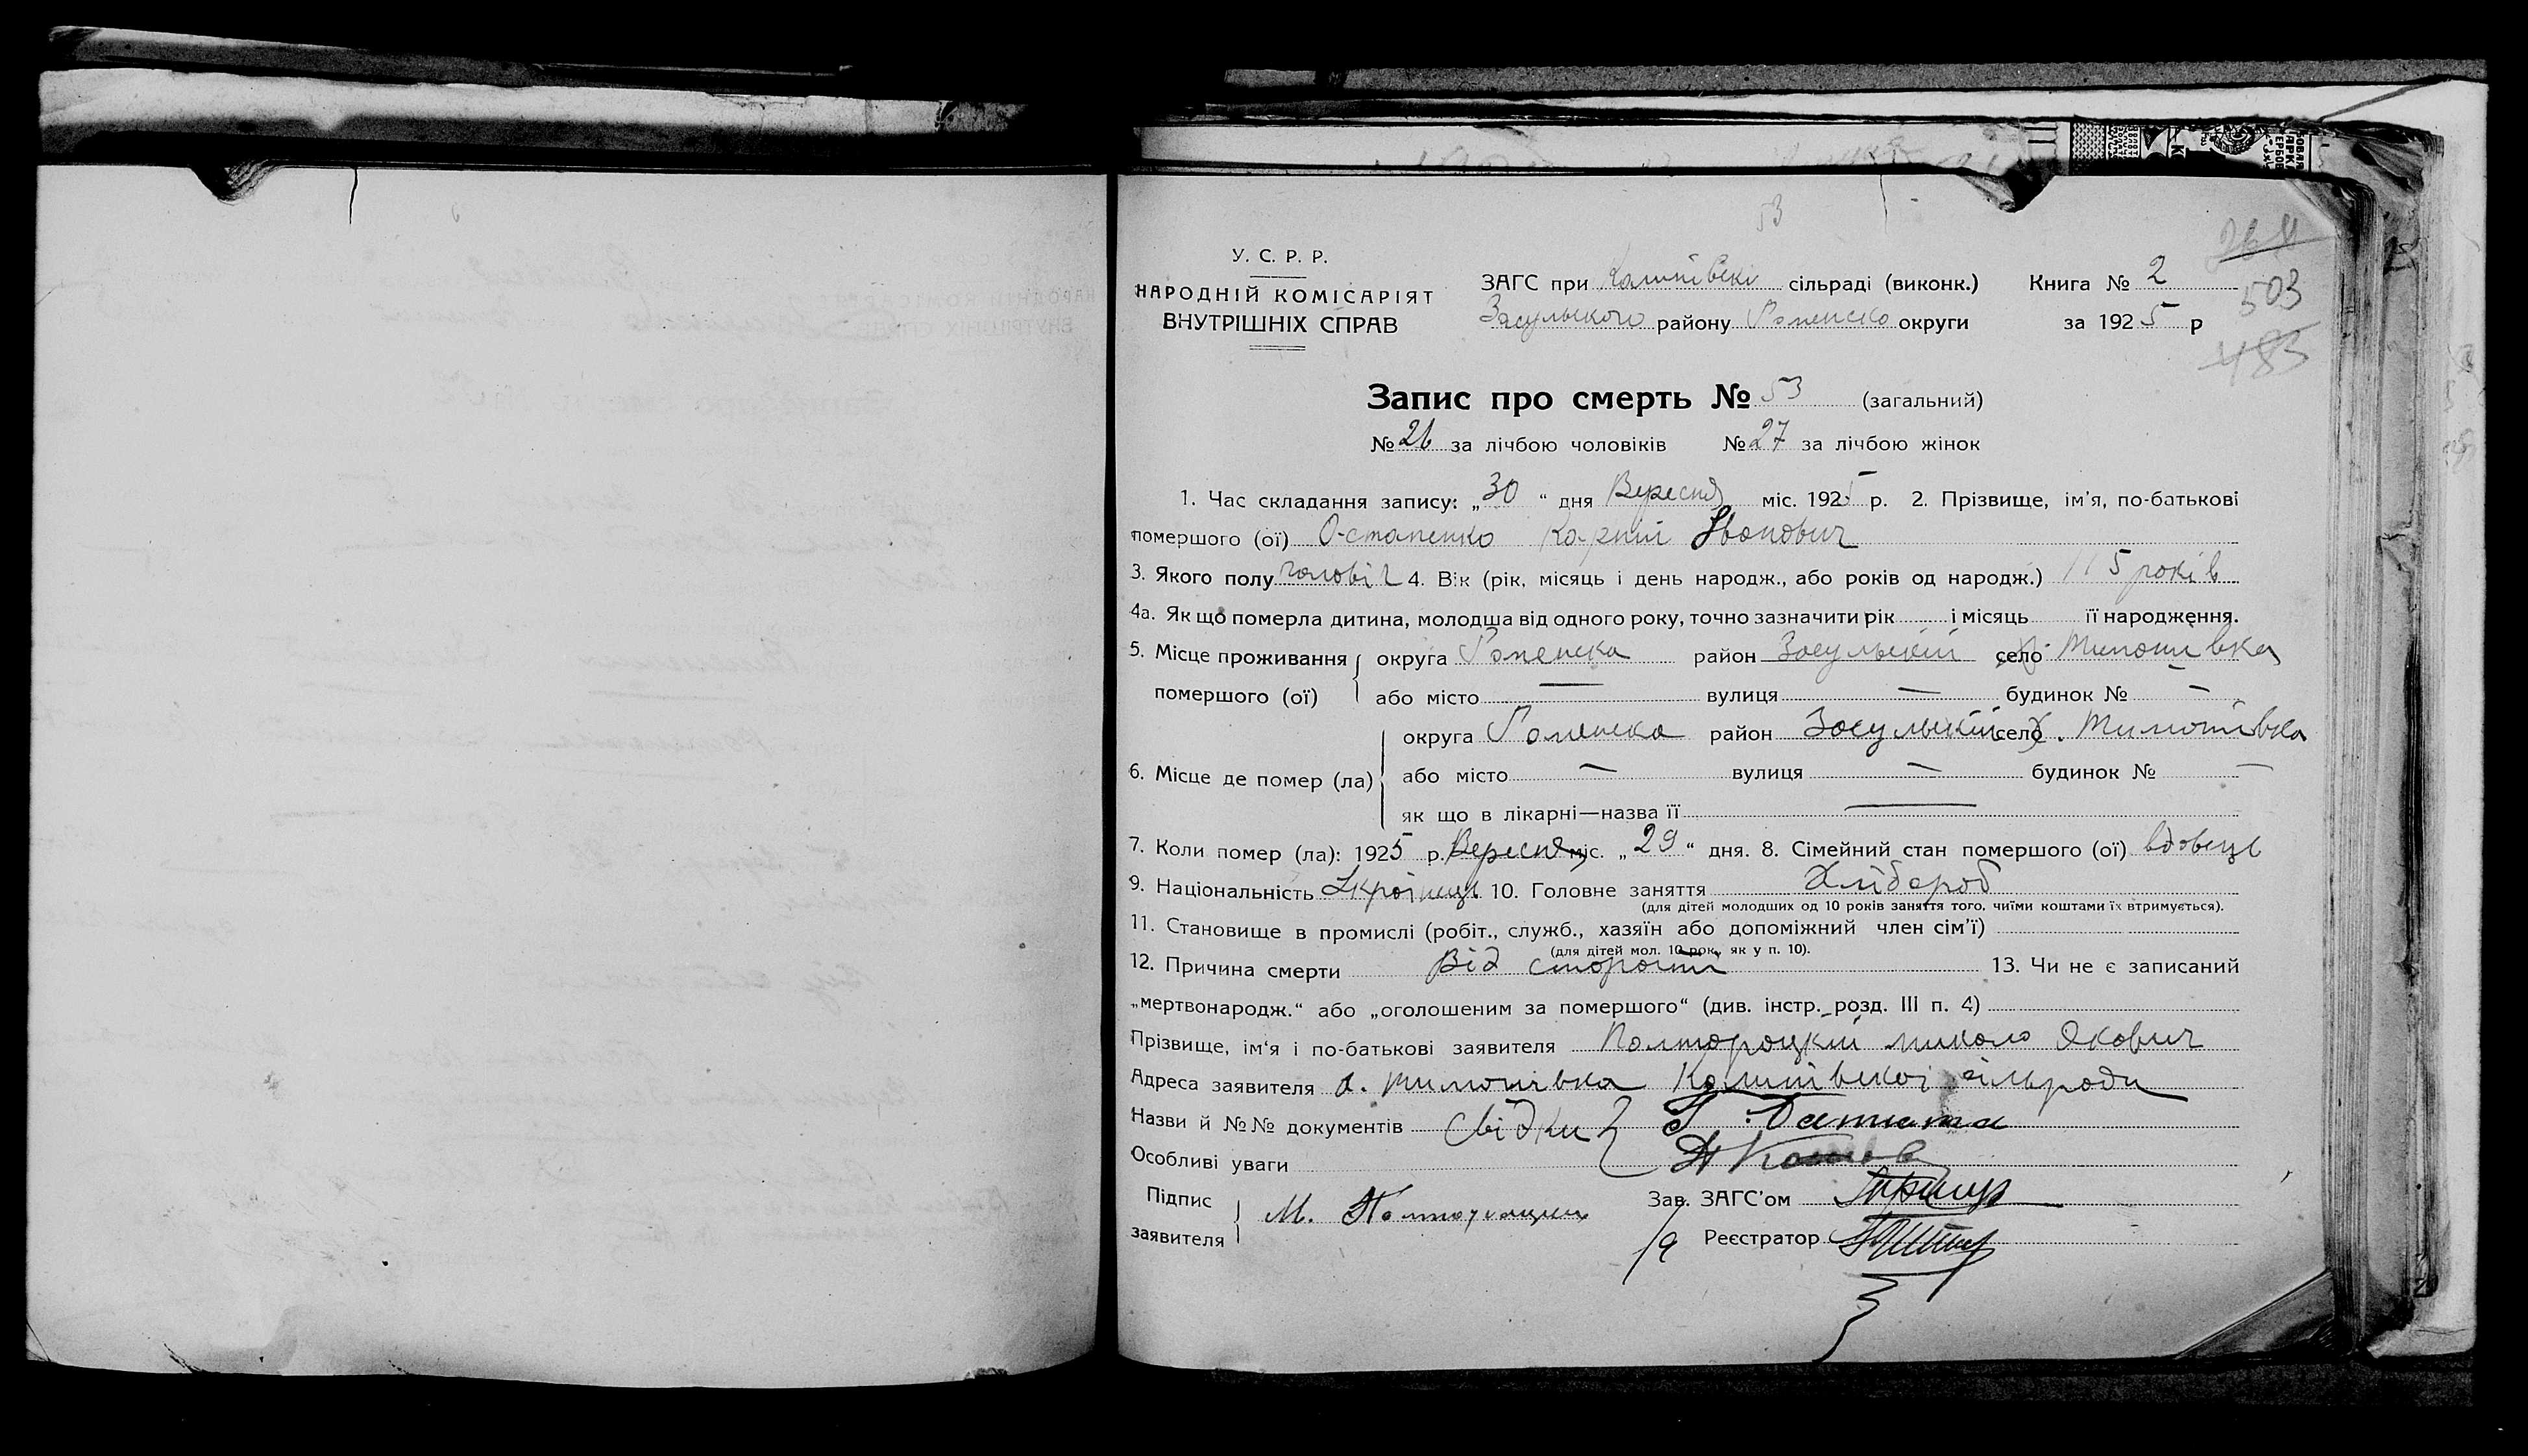 53
У. С. Р. Р.
НАРОДНІЙ КОМІСАРІЯТ
ВНУТРІШНІХ СПРАВ
ЗАГС при сільраді (виконк.)
Засульского району Роменско округи
Книга № 2
за 1925 р
503
483
Запис про смерть № 53 (загальний)
№ 26 за лічбою чоловіків № 27 за лічбою жінок
1. Час складання запису: „30“ дня Вересня міс. 1925 р. 2. Прізвище, ім'я, по-батькові
помершого (ої) Остапенко Карпій Іванович
3. Якого полу чоловіч 4. Вік (рік, місяць і день народж., або років од народж.) 115 років
4а. Як що померла дитина, молодша від одного року, точно зазначити рік і місяць її народження.
5. Місце проживання помершого (ої) округа Роменска район Засульский село х. Тимотівка
або місто — вулиця — будинок № —
6. Місце де помер (ла) округа Роменска район Засульский село х. Тимотівка
або місто — вулиця — будинок № —
як що в лікарні—назва її —
7. Коли помер (ла): 1925 р. Вересня міс. „29“ дня. 8. Сімейний стан помершого (ої) вдовець
9. Національність Українець 10. Головне заняття Хлібороб
(для дітей молодших од 10 років заняття того, чиїми коштами їх втримується).
11. Становище в промислі (робіт., служб., хазяїн або допоміжний член сім'ї)
(для дітей мол. 10 рок, як у п. 10).
12. Причина смерти Від старости 13. Чи не є записаний
„мертвонародж.“ або „оголошеним за помершого“ (див. інстр. розд. III п. 4)
Прізвище, ім'я і по-батькові заявителя Полтороцкий Микола Якович
Адреса заявителя х. Тимотівка сільради
Назви й №№ документів Свідки
Особливі уваги
Підпис заявителя М. Полтороцкий
Зав. ЗАГС'ом
Реєстратор